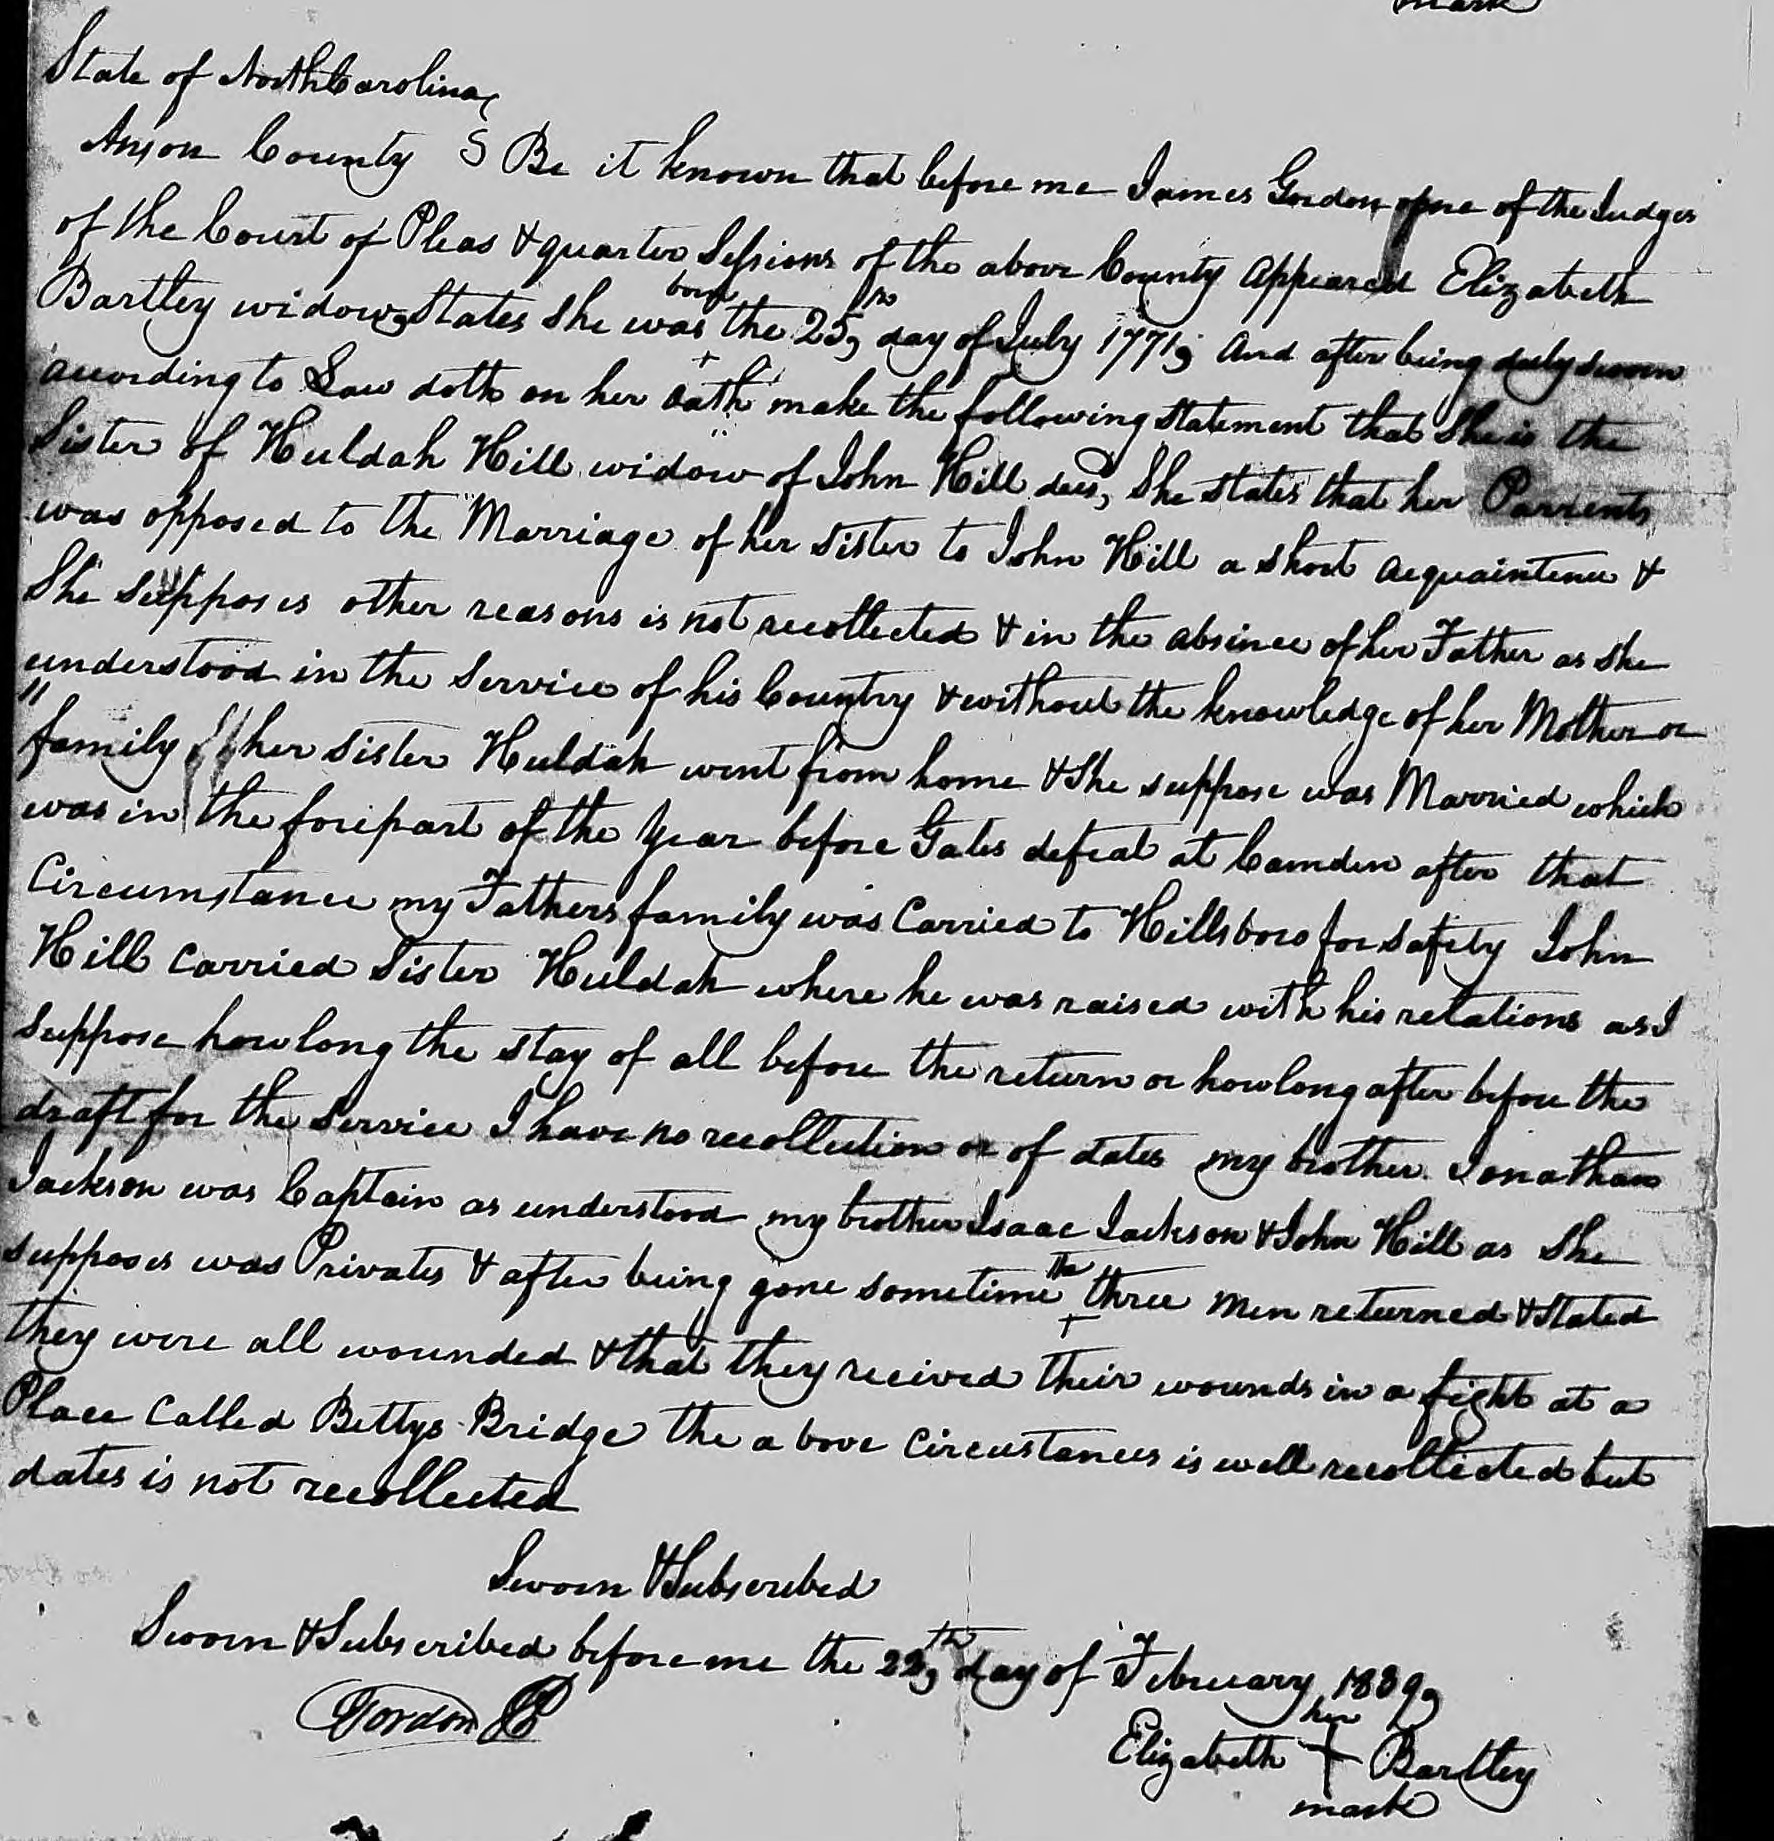 mark
State of North Carolina
Anson County S Be it known that before me James Gordon one of the Judges
of the Court of Pleas & quarter Sessions of the above County appeared Elizabeth
Bartley widow States She was born the 25th day of July 1771, And after being duly sworn
according to Law doth on her oath make the following Statement that She is the
Sister of Huldah Hill widow of John Hill decd, She states that her Parrents
was opposed to the Marriage of her Sister to John Hill a short acquaintence &
She supposes other reasons is not recollected & in the absince of her Father as she
understood in the Service of his Country & without the knowledge of her Mother or
family her Sister Huldah went from home & She suppose was Married which
was in the forepart of the Year before Gates defeat at Camden after that
Circumstance my Fathers family was Carried to Hillsboro for Safety John
Hill Carried Sister Huldah where he was raised with his relations as I
Suppose how long the stay of all before the return or how long after before the
draft for the Service I have no recollection or of dates my brother Jonathan
Jackson was Captain as understood my brother Isaac Jackson & John Hill as She
supposes was Privates & after being gone sometime the three men returned & Stated
they were all wounded & that they recieved their wounds in a fight at a
Place Called Bettys Bridge the above Circustances is well recollected but
dates is not recollected
Sworn & Subscribed
Sworn & Subscribed before me the 22th day of February 1839,
Gordon
her
Elizabeth + Bartley
mark